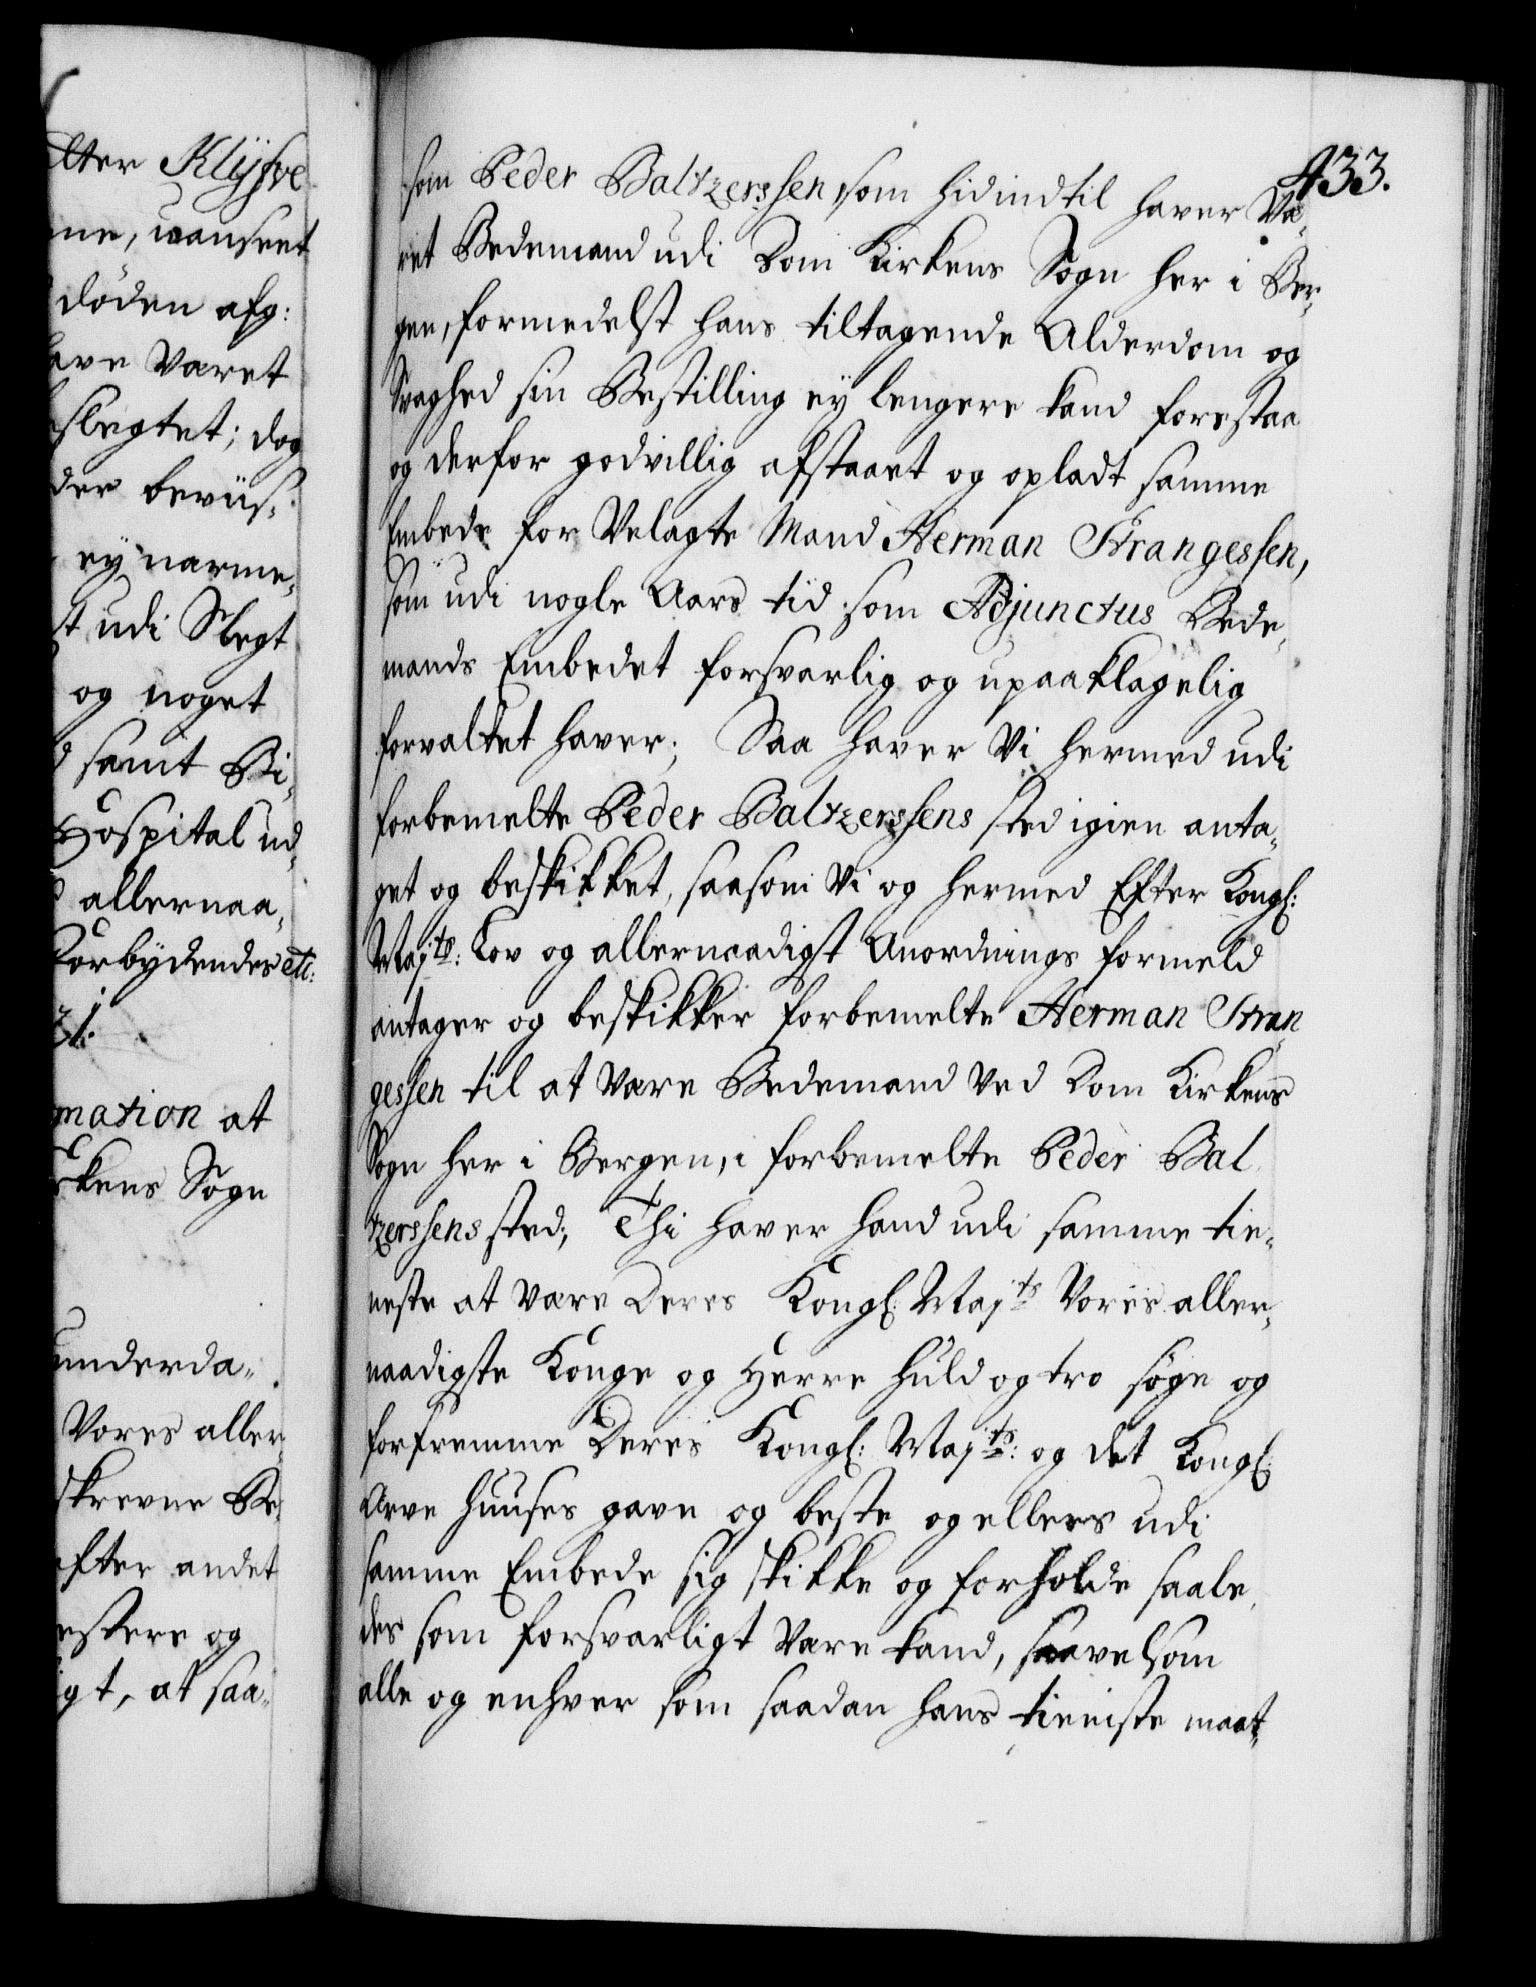 433.
som Peder Baltzerssen, som hidindtil haver Væ-
ret Bedemand udi Dom Kirkens Sogn her i Ber-
gen, formedelst hans tiltagende Alderdom og
Svaghed sin Bestilling ey lengere kand forestaa
og derfor godvillig afstaaet og opladt samme
Embede for Velagte Mand Herman Strangessen,
som udi nogle Aars tid som Adjunctus Bede-
mands Embedet forsvarlig og upaaklagelig
forvaltet haver; Saa haver Vi hermed udi
forbemelte Peder Baltzerssens sted igien anta-
get og beskikket, saasom Vi og hermed Efter Kongl:
Majts: Lov og allernaadigst Anordnings formeld
antager og beskikker forbemelte Herman Stran
gessen til at være Bedemand ved Dom Kirkens
Sogn her i Bergen, i forbemelte Peder Bal
tzerssens sted; Thi haver hand udi samme tie-
neste at være Deres Kongl: Majts Vores aller-
naadigste Konge og Herre huld og tro søge og
forfremme Deres Kongl: Majts: og det Kongl:
Arve Huuses gavn og beste og ellers udi
samme Embede sig skikke og forholde saale
des som forsvarligt være kand, saavelsom
alle og enhver som saadan hans tieniste maat-
lter Klyfve
me, uanseet
døden afg:
have Været
slegtet; dog
der beviis-
ey nærme-
st udi Slegt
og noget
samt Bi-
Hospital ud-
allernaa-
Forbydendes etc:
31.
mation at
rkens Sogn
underda-
Vores aller-
skrevne Be-
efter andet
estere og
igt, at saa-